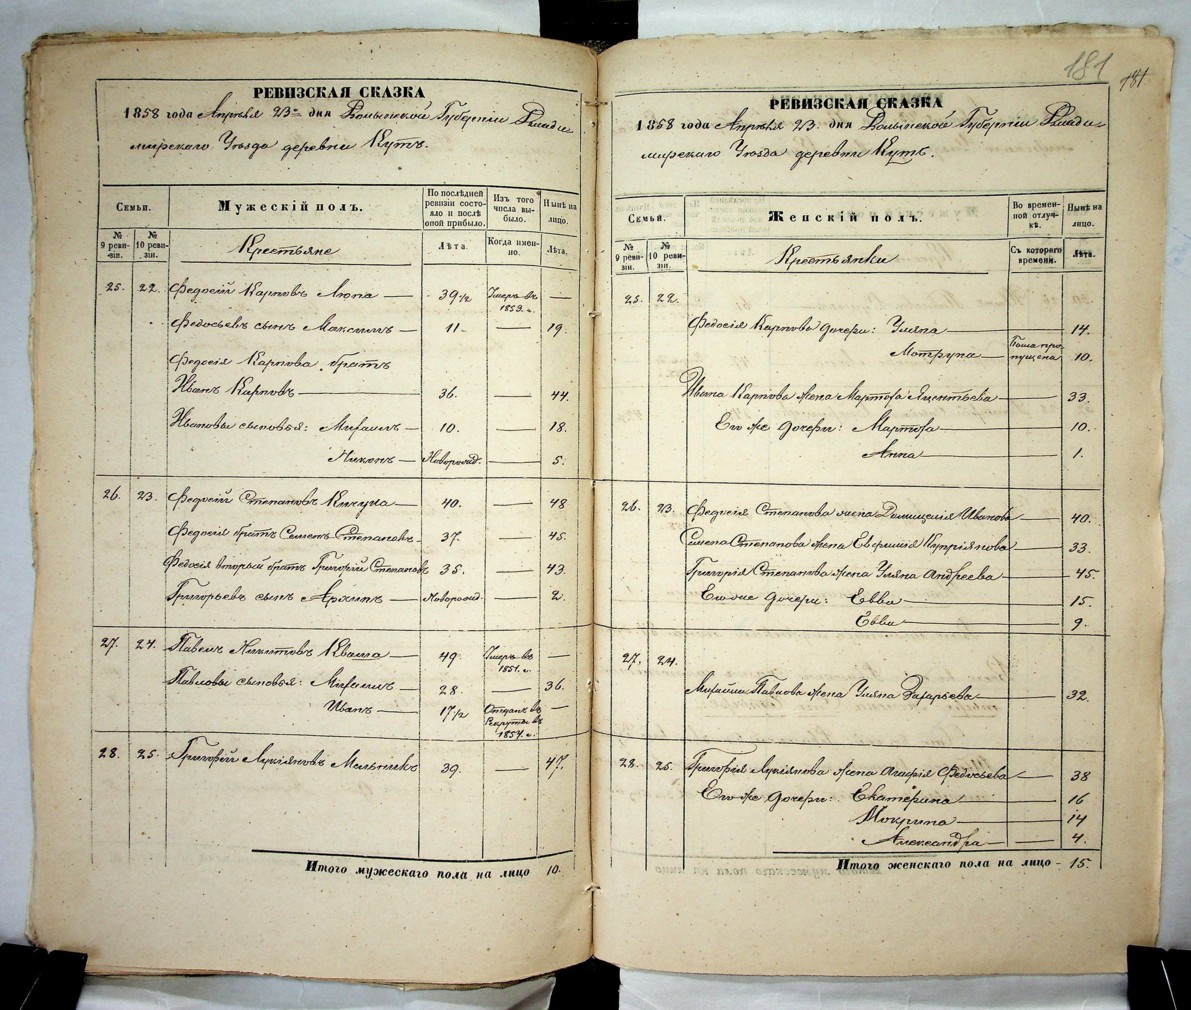 181
181
РЕВИЗСКАЯ СКАЗКА
1858 года Апрѣля 23го дня Волынской Губерніи Влади-
мирскаго Уѣзда деревни Кутъ.
Семьи.
Мужескій полъ.
По послѣдней ревизіи состояло и послѣ оной прибыло.
Изъ того числа выбыло.
Нынѣ на лицо.
№ 9 ревизіи.
№ 10 ревизіи.
Крестьяне
Лѣта.
Когда именно.
Лѣта.
25. 22. Федосій Карповъ — 39½ Умеръ въ 1853. г. —
Федосьевъ сынъ Максимъ — 11. — 19.
Федосія Карпова братъ
Иванъ Карповъ — 36. — 44.
Ивановы сыновья: Михаилъ — 10. — 18.
Никонъ — Новорожд. — 5.
26. 23. Федосій Степановъ — 40. — 48
Федосія братъ Семенъ Степановъ — 37. — 45.
Федосія вторый братъ Григорій Степановъ 35. — 43.
Григорьевъ сынъ Архипъ — Новорожд. — 2.
27. 24. Павелъ Никитовъ Кваша — 49. Умеръ въ 1851. г. —
Павловы сыновья: Михаилъ — 28. — 36.
Иванъ — 17½ Отданъ въ Рекруты въ 1854. г. —
28. 25. Григорій Лукіяновъ Мельникъ 39. — 47.
Итого мужескаго пола на лицо 10.
РЕВИЗСКАЯ СКАЗКА
1858 года Апрѣля 23. дня Волынской Губерніи Влади-
мирскаго Уѣзда деревни Кутъ.
Семьи.
Женскій полъ.
Во временной отлучкѣ.
Нынѣ на лицо.
№ 9 ревизіи.
№ 10 ревизіи.
Крестьянки
Съ котораго времени.
Лѣта.
25. 22.
Федосія Карпова дочери: Уляна — 14.
Мотруна — Была пропущена 10.
Ивана Карпова жена Марта — 33.
Его же дочери: Марта — 10.
Анна — 1.
26. 23. Федосія Степанова жена Домицелія Иванова — 40.
Семена Степанова жена Евфимія Купріянова — 33.
Григорія Степанова жена Уляна Андреева — 45.
Его же дочери: Евва — 15.
Евва — 9.
27. 24.
Михаила Павлова жена Уляна Захарьева — 32.
28. 25. Григорія Лукіянова жена Агафія Федосьева — 38
Его же дочери: Екатерина — 16
Мокрина — 14
Александра — 4.
Итого женскаго пола на лицо - 15.